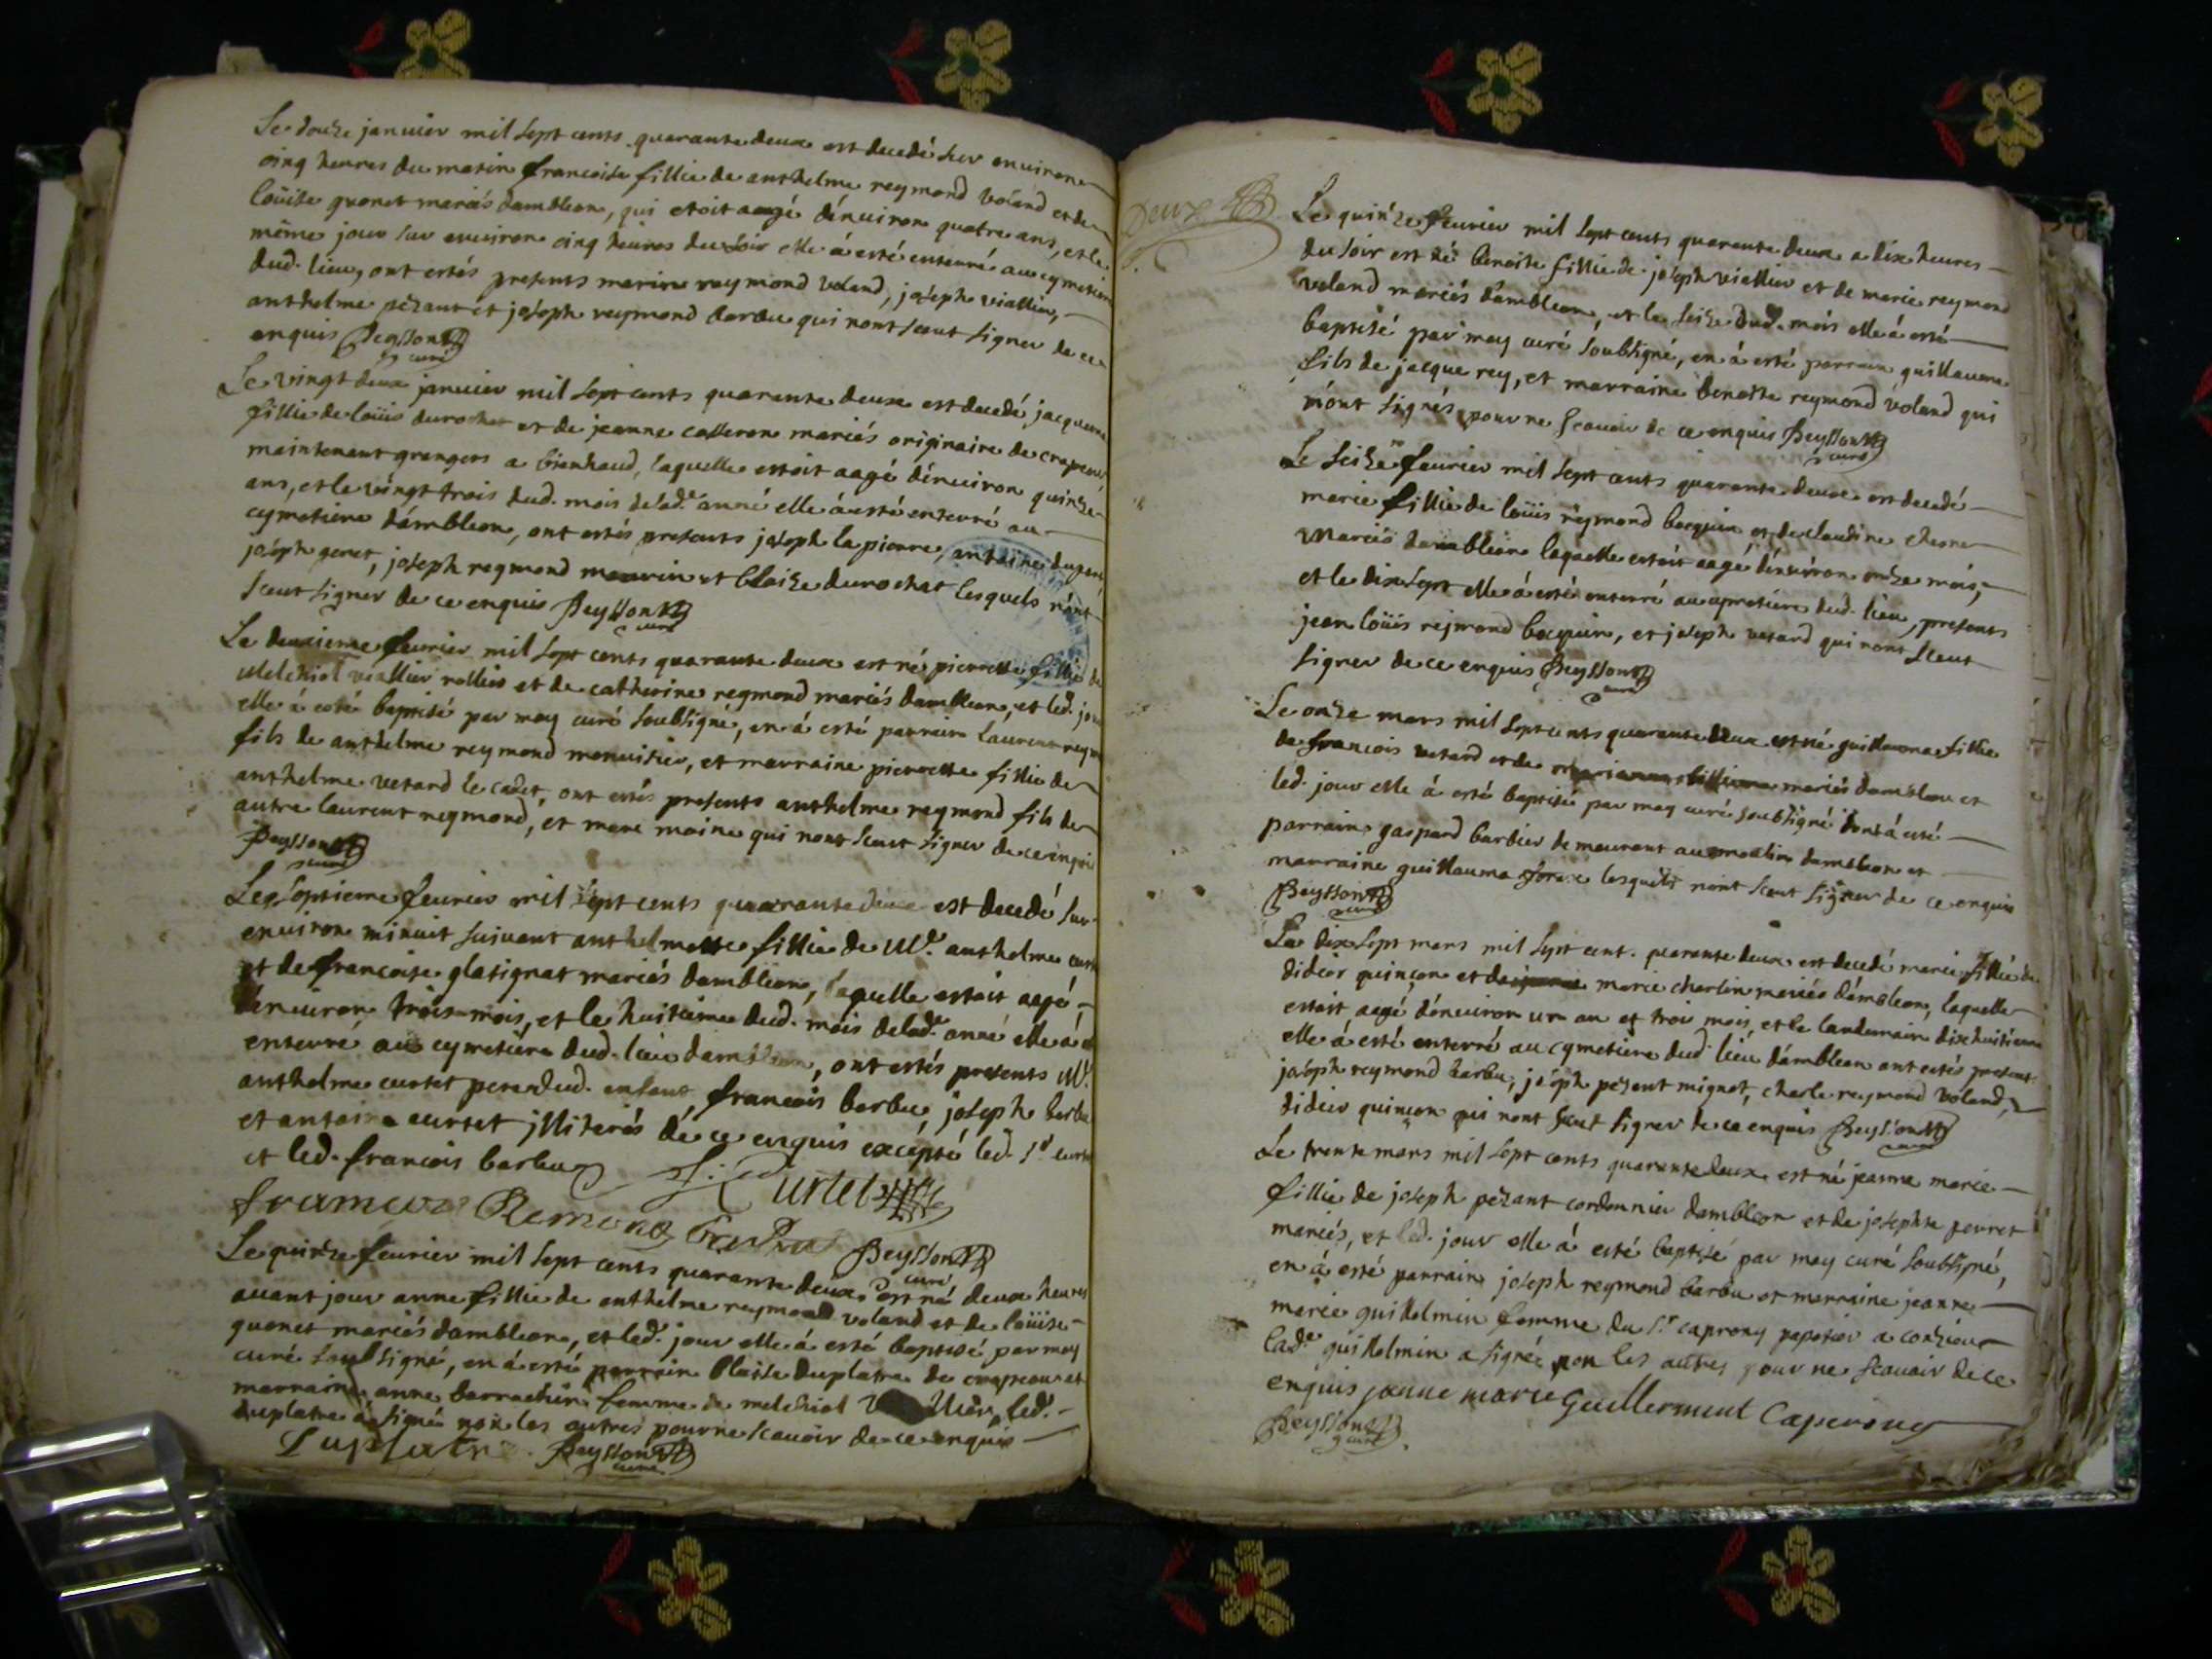 Le douze janvier mil sept cents quarante deux est decedé sur environ
cinq heures du matin francoise fillie de anthelme reymond voland et de
loüise guonet mariés dambleon, qui etoit aagé d'enuiron quatre ans, et le
même jour sur enuiron cinq heures du soir elle á esté enterré au cymetiere
dud. lieu, ont estés presents marin reymond voland, joseph viallier,
anthelme pezant et joseph reymond barbu qui nont sceut signer de ce
enquis Beysson
curé
Le vingt deux janvier mil sept cents quarante deux est decedé jacquema
fillie de loüis durochat et de jeanne calleron mariés originaire de crapeou
maintenant grangers a brenhaud, laquelle estoit aagé d'enuiron quinze
ans, et le vingt trois dud. mois de lad.e anné elle á esté enterré au
cymetiere d'ambleon, ont estés presents joseph la pierre, antoine
joseph genet, joseph reymond maurin et blaise durochat lesquels n'ont
sceut signer de ce enquis Beysson
curé
Le deuxieme feurier mil sept cents quarante deux est né pierrette fillie de
Melchiol viallier rollier et de catherine reymond mariés dambleon, et led. jour
elle á esté baptisé par moy curé soubsigné, en á esté parrain laurent reymond
fils de anthelme reymond menuisier, et marraine pierrette fillie de
anthelme vetard le cadet, ont estés presents anthelme reymond fils de
autre laurent reymond, et marc moine qui nont sceut signer de ce enquis
Beysson
curé
Le septieme feurier mil sept cents quarante deux est decedé sur
enuiron minuit suivant anthelmette fillie de M.e anthelme curtet
et de francoise glatignat mariés dambleon, laquelle estoit aagé
d'enuiron trois mois, et le huitieme dud. mois de lad.e anné elle á esté
enterré au cymetiere dud. lieu dambleon, ont estés presents M.e
anthelme curtet pere dud. enfant, francois barbu, joseph barbu
et antoine curtet jlliterés de ce enquis excepté led. s.r curtet
et led. francois barbu
Curtet
francois Remond Barbu Beysson
curé
Le quinze feurier mil sept cents quarante deux est né deux heures
auant jour anne fillie de anthelme reymond voland et de loüise
guonet mariés dambleon, et led. jour elle á esté baptisé par moy
curé soubsigné, en á esté parrain blaise duplatre de crapeou et
marraine anne barrachin femme de melchiol viallier, led.
duplatre á signé non les autres pour ne scauoir de ce enquis
Duplatre Beysson
curé
Deux
Le quinze feurier mil sept cents quarante deux a dix heures
du soir est né benoite fillie de joseph viallier et de marie reymond
voland mariés d'ambleon, et le seize dud. mois elle á esté
baptisé par moy curé soubsigné, en á esté parrain guillaume
fils de jacque rey, et marraine benoite reymond voland qui
n'ont signés pour ne scauoir de ce enquis Beysson
curé
Le seize feurier mil sept cents quarante deux est decedé
marie fillie de loüis reymond bocquin et de claudine chesne
mariés dambleon laquelle estoit aagé d'enuiron onze mois,
et le dix sept elle á esté enterré au cymetiere dud. lieu, presents
jean loüis rejmond bocquin, et joseph vetard qui nont sceut
signer de ce enquis Beysson
curé
Le onze mars mil sept cents quarante deux est né guillauma fillie
de francois vetard et de mariés dambleon et
led. jour elle á esté baptisé par moy curé soubsigné dont á esté
parrain gaspard barbier demeurant au moulin dambleon et
marraine guillauma lesquels n'ont sceut signer de ce enquis
Beysson
curé
Le dix sept mars mil sept cent. quarante deux est decedé marie fillie de
didier quinçon et de marie charlin mariés d'ambleon, laquelle
estoit aagé d'enuiron un an et trois mois, et le landemain dix huitieme
elle á esté enterré au cymetiere dud. lieu d'ambleon ont estés presents
joseph reymond barbu, joseph pezant mignot, charle reymond voland,
didier quinçon qui nont sceut signer de ce enquis Beysson
curé
Le trente mars mil sept cents quarante deux est né jeanne marie
fillie de joseph pezant cordonnier dambleon et de josephte perret
mariés, et led. jour elle á esté baptisé par moy curé soubsigné,
en á esté parrain joseph reymond barbu et marraine jeanne
marie guillelmin femme du s.r caprony papetier a conzieu
lad.e guillelmin a signé, non les autres pour ne scauoir de ce
enquis janne marie Guillermint Caperony
Beysson
curé